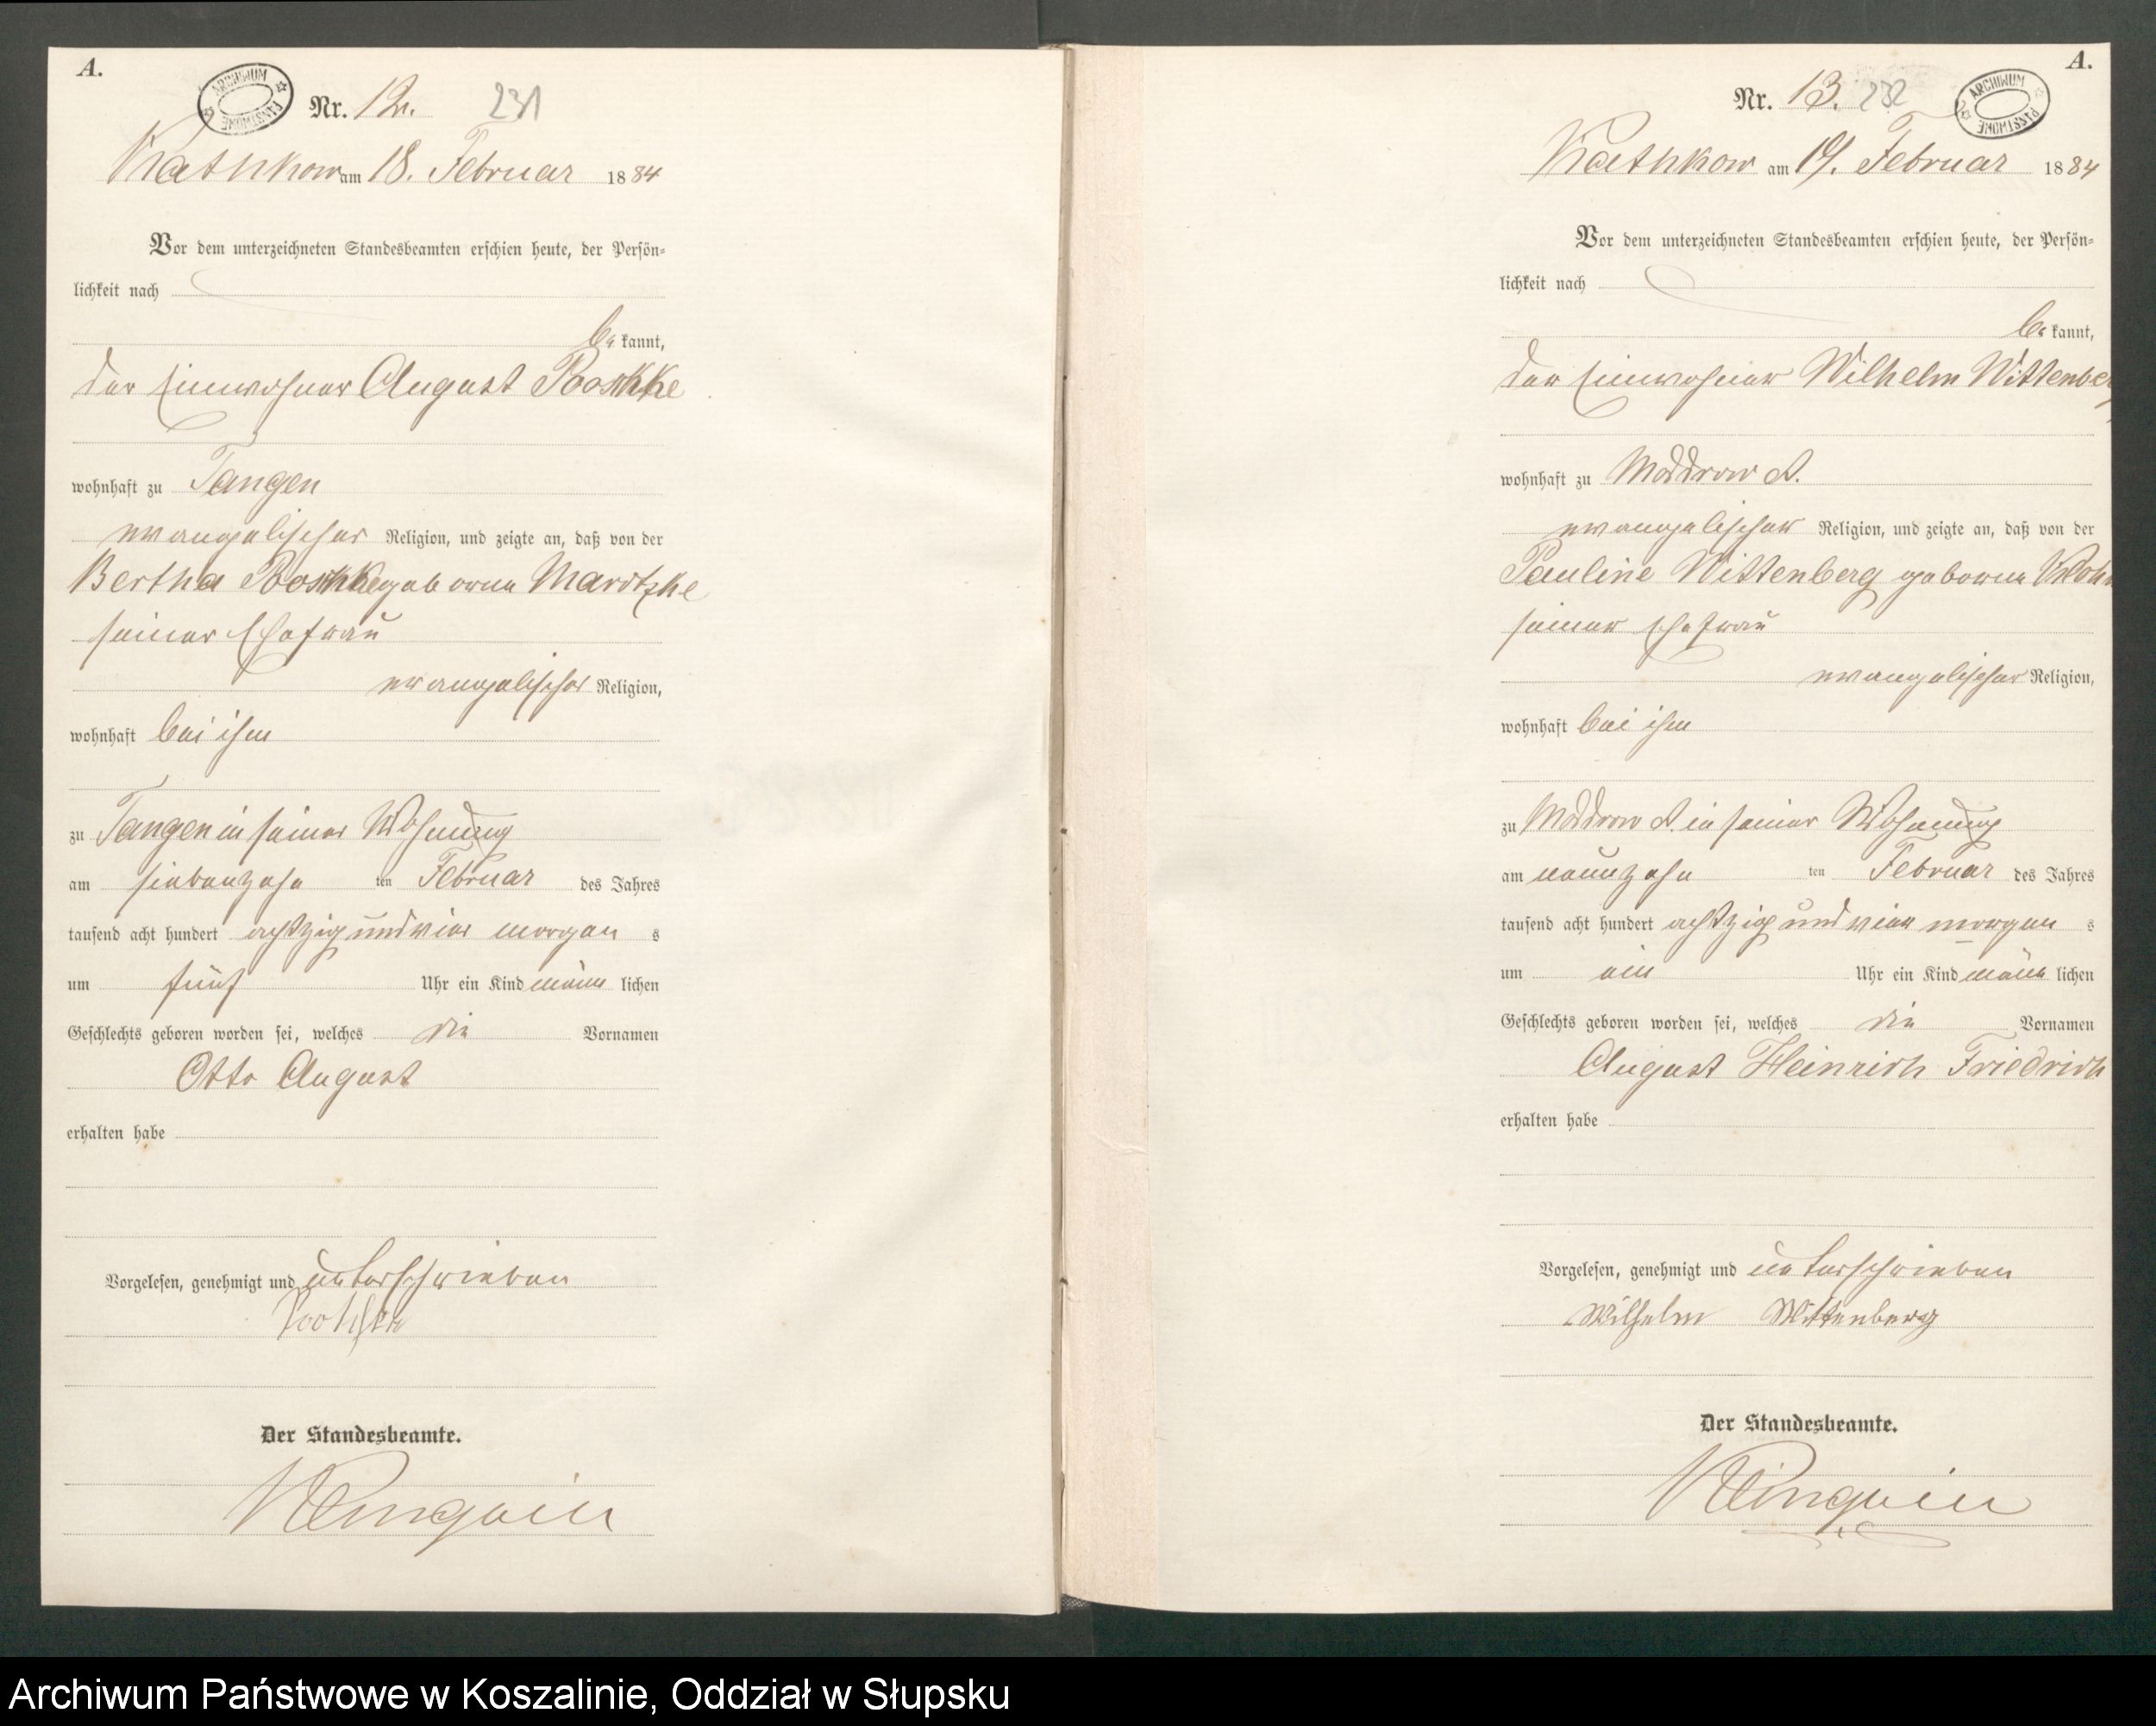 A.
ARCHIWUM PAŃSTWOWE
Nr. 12. 231
Kathkow am 18. Februar 1884
Vor dem unterzeichneten Standesbeamten erschien heute, der Persön-
lichkeit nach
be kannt,
der Einwohner August Pooschke
wohnhaft zu Tangen
evangelischer Religion, und zeigte an, daß von der
Bertha geborene Marotzke
seiner Ehefrau
evangelischer Religion,
wohnhaft bei ihm
zu Tangen in seiner Wohnung
am siebenzehn ten Februar des Jahres
tausend acht hundert achtzig und vier morgen s
um fünf Uhr ein Kind männ lichen
Geschlechts geboren worden sei, welches die Vornamen
Otto August
erhalten habe
Vorgelesen, genehmigt und unterschrieben
Der Standesbeamte.
A.
ARCHIWUM PAŃSTWOWE
Nr. 13. 232
Kathkow am 19. Februar 1884
Vor dem unterzeichneten Standesbeamten erschien heute, der Persön-
lichkeit nach
be kannt,
der Einwohner Wilhelm Wittenberg
wohnhaft zu Moddrow A.
evangelischer Religion, und zeigte an, daß von der
Pauline Wittenberg geborene
seiner Ehefrau
evangelischer Religion,
wohnhaft bei ihm
zu Moddrow A. in seiner Wohnung
am neunzehn ten Februar des Jahres
tausend acht hundert achtzig und vier morgen s
um ein Uhr ein Kind männ lichen
Geschlechts geboren worden sei, welches die Vornamen
August Heinrich Friedrich
erhalten habe
Vorgelesen, genehmigt und unterschrieben
Wilhelm Wittenberg
Der Standesbeamte.
Archiwum Państwowe w Koszalinie, Oddział w Słupsku